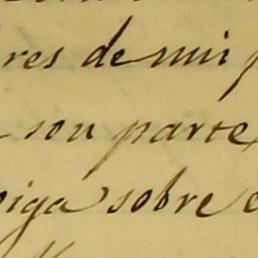 res de mi
son parte
oiga sobre